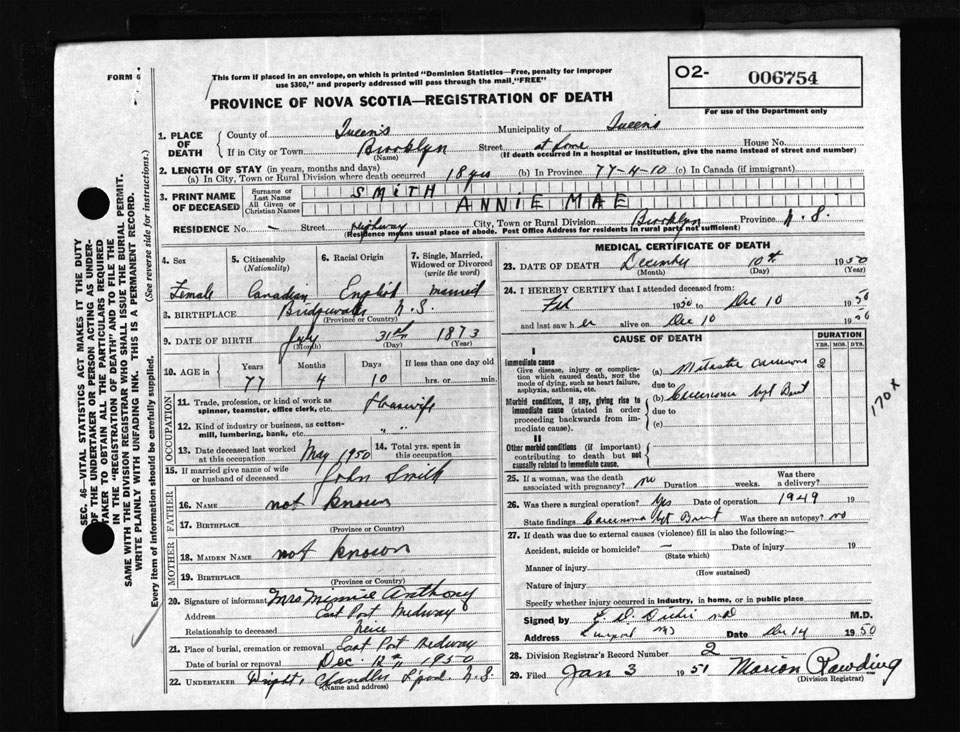 FORM 6
This form if placed in an envelope, on which is printed "Dominion Statistics—Free, penalty for improper
use $300," and properly addressed will pass through the mail, "FREE"
O2- 006754
For use of the Department only
PROVINCE OF NOVA SCOTIA—REGISTRATION OF DEATH
SEC. 46—VITAL STATISTICS ACT MAKES IT THE DUTY
OF THE UNDERTAKER OR PERSON ACTING AS UNDER-
TAKER TO OBTAIN ALL THE PARTICULARS REQUIRED
IN THE "REGISTRATION OF DEATH" AND TO FILE THE
SAME WITH THE DIVISION REGISTRAR WHO SHALL ISSUE THE BURIAL PERMIT.
WRITE PLAINLY WITH UNFADING INK. THIS IS A PERMANENT RECORD.
Every item of information should be carefully supplied. (See reverse side for instructions.)
1. PLACE OF DEATH
County of Queens Municipality of Queens
If in City or Town Brooklyn Street at home House No.
(Name) (If death occurred in a hospital or institution, give the name instead of street and number)
2. LENGTH OF STAY (in years, months and days)
(a) In City, Town or Rural Division where death occurred 18 yrs (b) In Province 77-4-10 (c) In Canada (if immigrant)
3. PRINT NAME OF DECEASED
Surname or Last Name SMITH
All Given or Christian Names ANNIE MAE
RESIDENCE No. - Street Highway City, Town or Rural Division Brooklyn Province N.S.
(Residence means usual place of abode. Post Office Address for residents in rural parts not sufficient)
4. Sex Female
5. Citizenship (Nationality) Canadian
6. Racial Origin English
7. Single, Married, Widowed or Divorced (write the word) married
8. BIRTHPLACE Bridgewater N.S.
(Province or Country)
9. DATE OF BIRTH July 31st 1873
(Month) (Day) (Year)
10. AGE in Years Months Days If less than one day old
77 4 10 hrs. or min.
OCCUPATION
11. Trade, profession, or kind of work as spinner, teamster, office clerk, etc. Housewife
12. Kind of industry or business, as cotton-mill, lumbering, bank, etc. " "
13. Date deceased last worked at this occupation May 1950
14. Total yrs. spent in this occupation
15. If married give name of wife or husband of deceased John Smith
FATHER
16. Name not known
17. Birthplace
(Province or Country)
MOTHER
18. Maiden Name not known
19. Birthplace
(Province or Country)
20. Signature of informant Mrs Minnie Anthony
Address East Port Medway
Relationship to deceased Neice
21. Place of burial, cremation or removal East Port Medway
Date of burial or removal Dec. 12th 1950
22. UNDERTAKER Chandler Lpool. N.S.
(Name and address)
MEDICAL CERTIFICATE OF DEATH
23. DATE OF DEATH December 10th 1950
(Month) (Day) (Year)
24. I HEREBY CERTIFY that I attended deceased from:
Feb 1950 to Dec 10 1950
and last saw her alive on Dec 10 1950
CAUSE OF DEATH
DURATION
YRS. MOS. DYS.
I
Immediate cause
Give disease, injury or complication which caused death, not the mode of dying, such as heart failure, asphyxia, asthenia, etc.
(a) 2
due to
Morbid conditions, if any, giving rise to immediate cause (stated in order proceeding backwards from immediate cause).
(b) Carcinoma
due to
(c)
170 x
II
Other morbid conditions (if important) contributing to death but not causally related to immediate cause.
25. If a woman, was the death associated with pregnancy? no Duration weeks. Was there a delivery?
26. Was there a surgical operation? Yes Date of operation 1949 19
State findings Carcinoma Was there an autopsy? no
27. If death was due to external causes (violence) fill in also the following:—
Accident, suicide or homicide? — Date of injury 19
(State which)
Manner of injury
(How sustained)
Nature of injury
Specify whether injury occurred in industry, in home, or in public place
Signed by M.D.
Address Date Dec 14 1950
28. Division Registrar's Record Number 2
29. Filed Jan 3 1951 Marion Rawding
(Division Registrar)